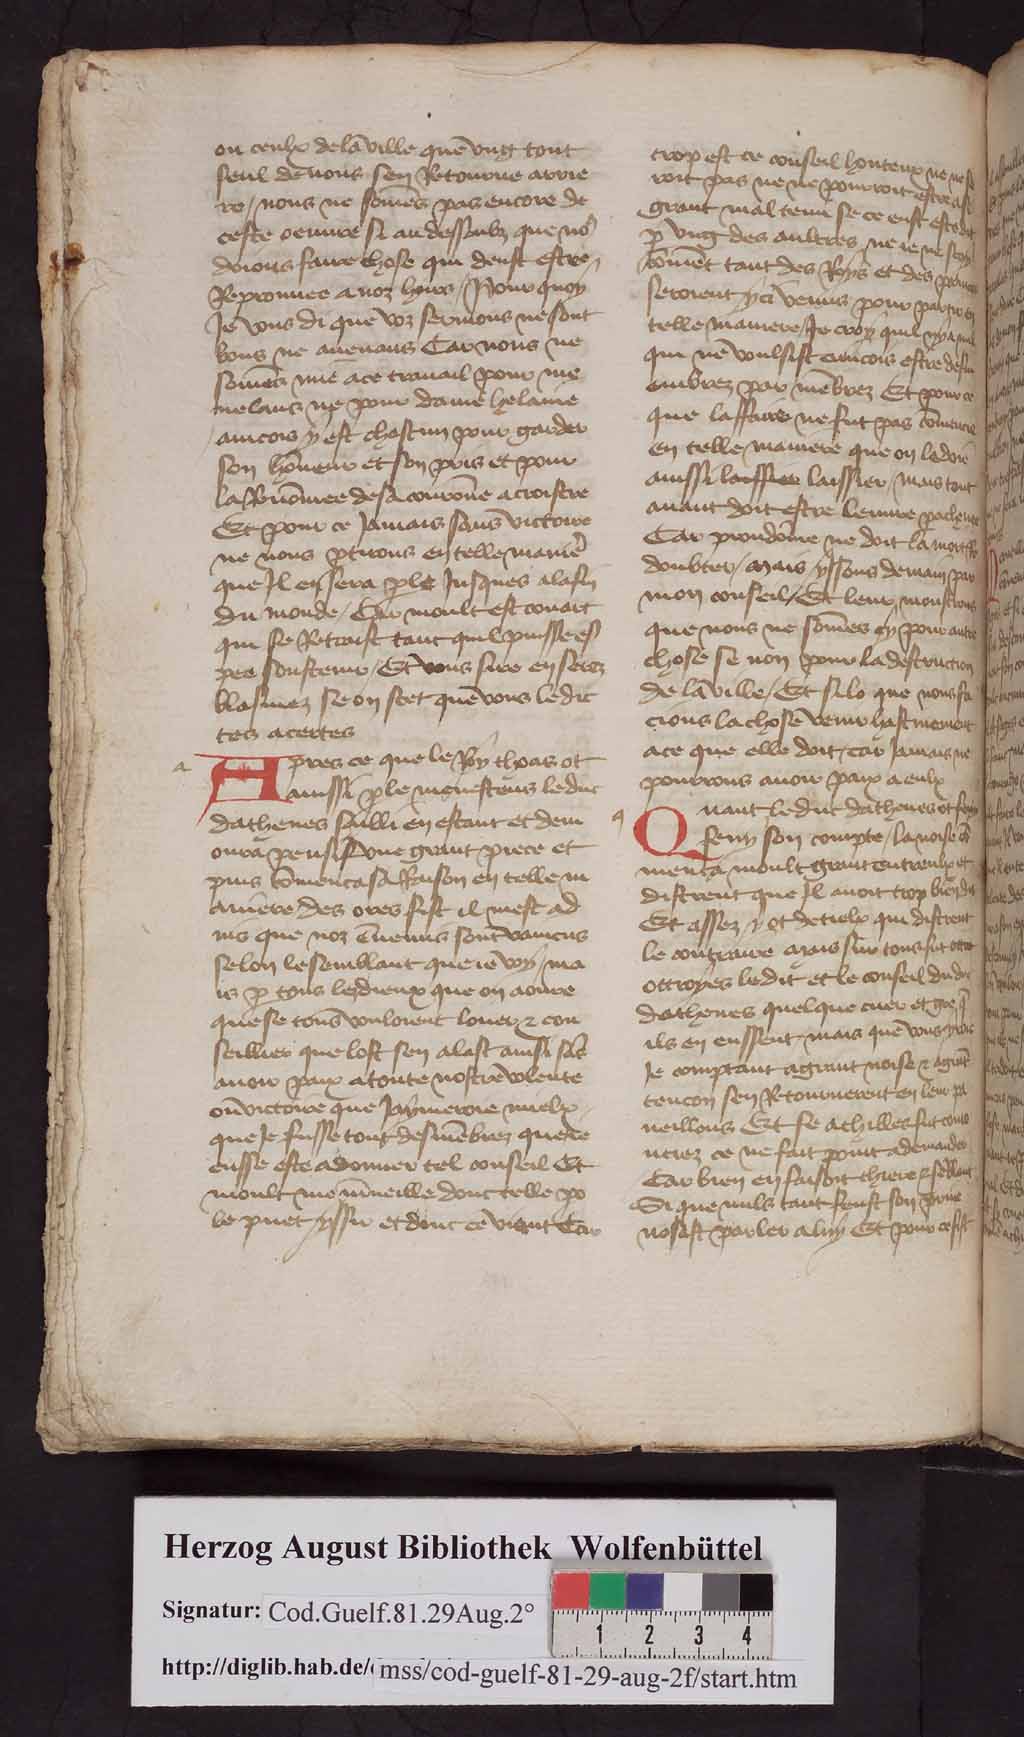 ou ceulx de la ville que ung tout
seul de nous sen Retourne arrie
re / nous ne somes pas encore de
ceste oeuvre si au dessoubz que no9
doions faire chose qui deust estre
Reprouvee a noz hoirs / Pour quoy
Je vous di que voz sermons ne sont
bons ne avenans Car nous ne
somes mie a ce travail pour me
nelaus ne pour dame helaine
aincois y est chascun pour garder
son honneur et son pris et pour
la Renomee de sa courone acroistre
Et pour ce Jamais sans victoire
ne nous ptirons en telle manie
que Jl en sera ple Jusques a la fin
du monde / Car moult est couart
qui se Retraist tant quil puisse es
pee soustenir / Et vous sire en serez
blasmez se on scet que vous le dic
tes acertes
a
Apres ce que le Roy thoas ot
ainssi ple menesteus le duc
dathenes sailli en estant et dem
oura pensif une grant piece et
puis comenca sa Raison en telle m
aniere des ores fist il mest ad
vis que noz enemis sont vaincus
selon le semblant que ie voy / ma
is p tous les dieux que on aoure
que se tous vouloient louer & con
seillier que lost sen alast ainsi sas
avoir paix a toute nostre volente
ou victoire que Jaymeroie mielx
que Je fusse tout desmembrez que ie
eusse este a donner tel conseil Et
moult me mveille dont telle po
be puet yssir et dont ce vient Car
trop est ce conseil honteux ne ne se
roit pas ne ne pourroit estre a si
grant mal tenu se ce eust este dit
p ung des aultres ne ie ne scay
coment tant des Roys et des princes
seroient yci venus pour partir en
telle maniere / Je croy quil ny a nul
qui ne voulsist aincois estre desm
embrez par membrez Et pour ce
que laffaire ne fut pas comencie
en telle maniere que on le doie
aussi laissier laissier / mais tout
avant doit estre leuvre pachevee
Car preudome ne doit la mort
doubter / mais yssons demain par
mon conseil / Et leur monstrons
que nous ne somes cy pour autre
chose se non pour la destruction
de la ville / Et si lo que nous fa
cions la chose venir hastivement
a ce que elle doit / car Jamais ne
pourrons avoir paix a eulx
q
Quant le duc dathenes ot
feny son compte / la noise co
menca moult grant entreulx et
distrent que Jl avoit trop bien dit
Et assez y ot de tielx qui distrent
le contraire mais sur tous fut
ottroyes le dit et le conseil du duc
dathenes quelque cuer et gre q
ils en eussent / mais que vous yroie
Je comptant a grant noise & a grant
tencon sen Retournerent en leur pa
veillons Et se achilles fut cour
uciez ce ne fait point a demander
Car bien en faisoit chiere & semblant
Si que nuls tant feust son prive
nosast parler a luy Et pour ce fist
Herzog August Bibliothek Wolfenbüttel
Signatur: Cod.Guelf.81.29Aug.2°
1 2 3 4
http://diglib.hab.de/ mss/cod-guelf-81-29-aug-2f/start.htm